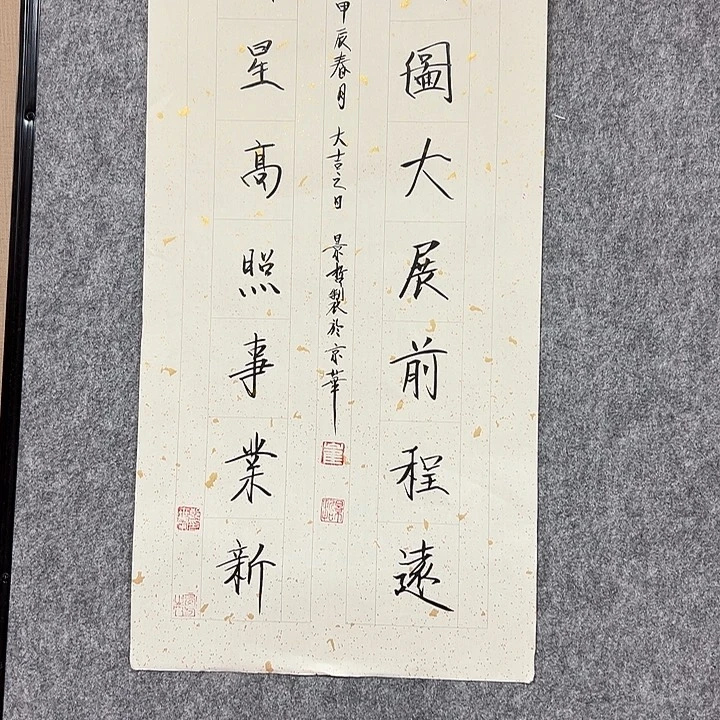 圖大展前程遠
甲辰春月 大吉之日 景哲製於京華
星高照事業新